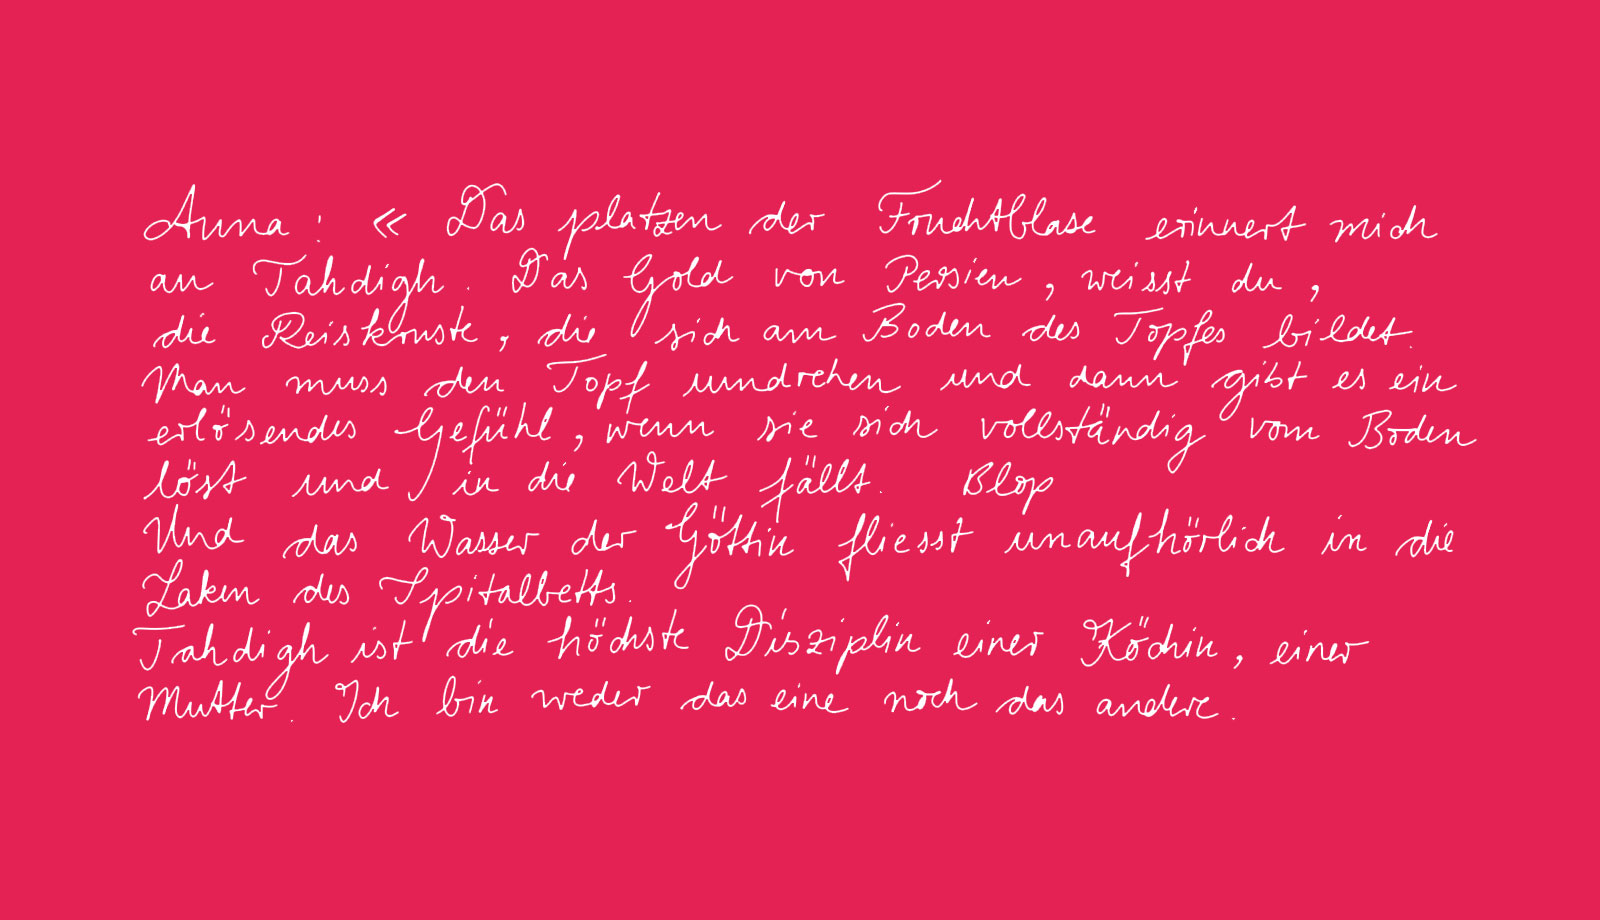 Anna: « Das platzen der Fruchtblase erinnert mich
an Tahdigh. Das Gold von Persien, weisst du,
die Reiskruste, die sich am Boden des Topfes bildet.
Man muss den Topf umdrehen und dann gibt es ein
erlösendes Gefühl, wenn sie sich vollständig vom Boden
löst und in die Welt fällt. Blop
Und das Wasser der Göttin fliesst unaufhörlich in die
Laken des Spitalbetts.
Tahdigh ist die höchste Disziplin einer Köchin, einer
Mutter. Ich bin weder das eine noch das andere.